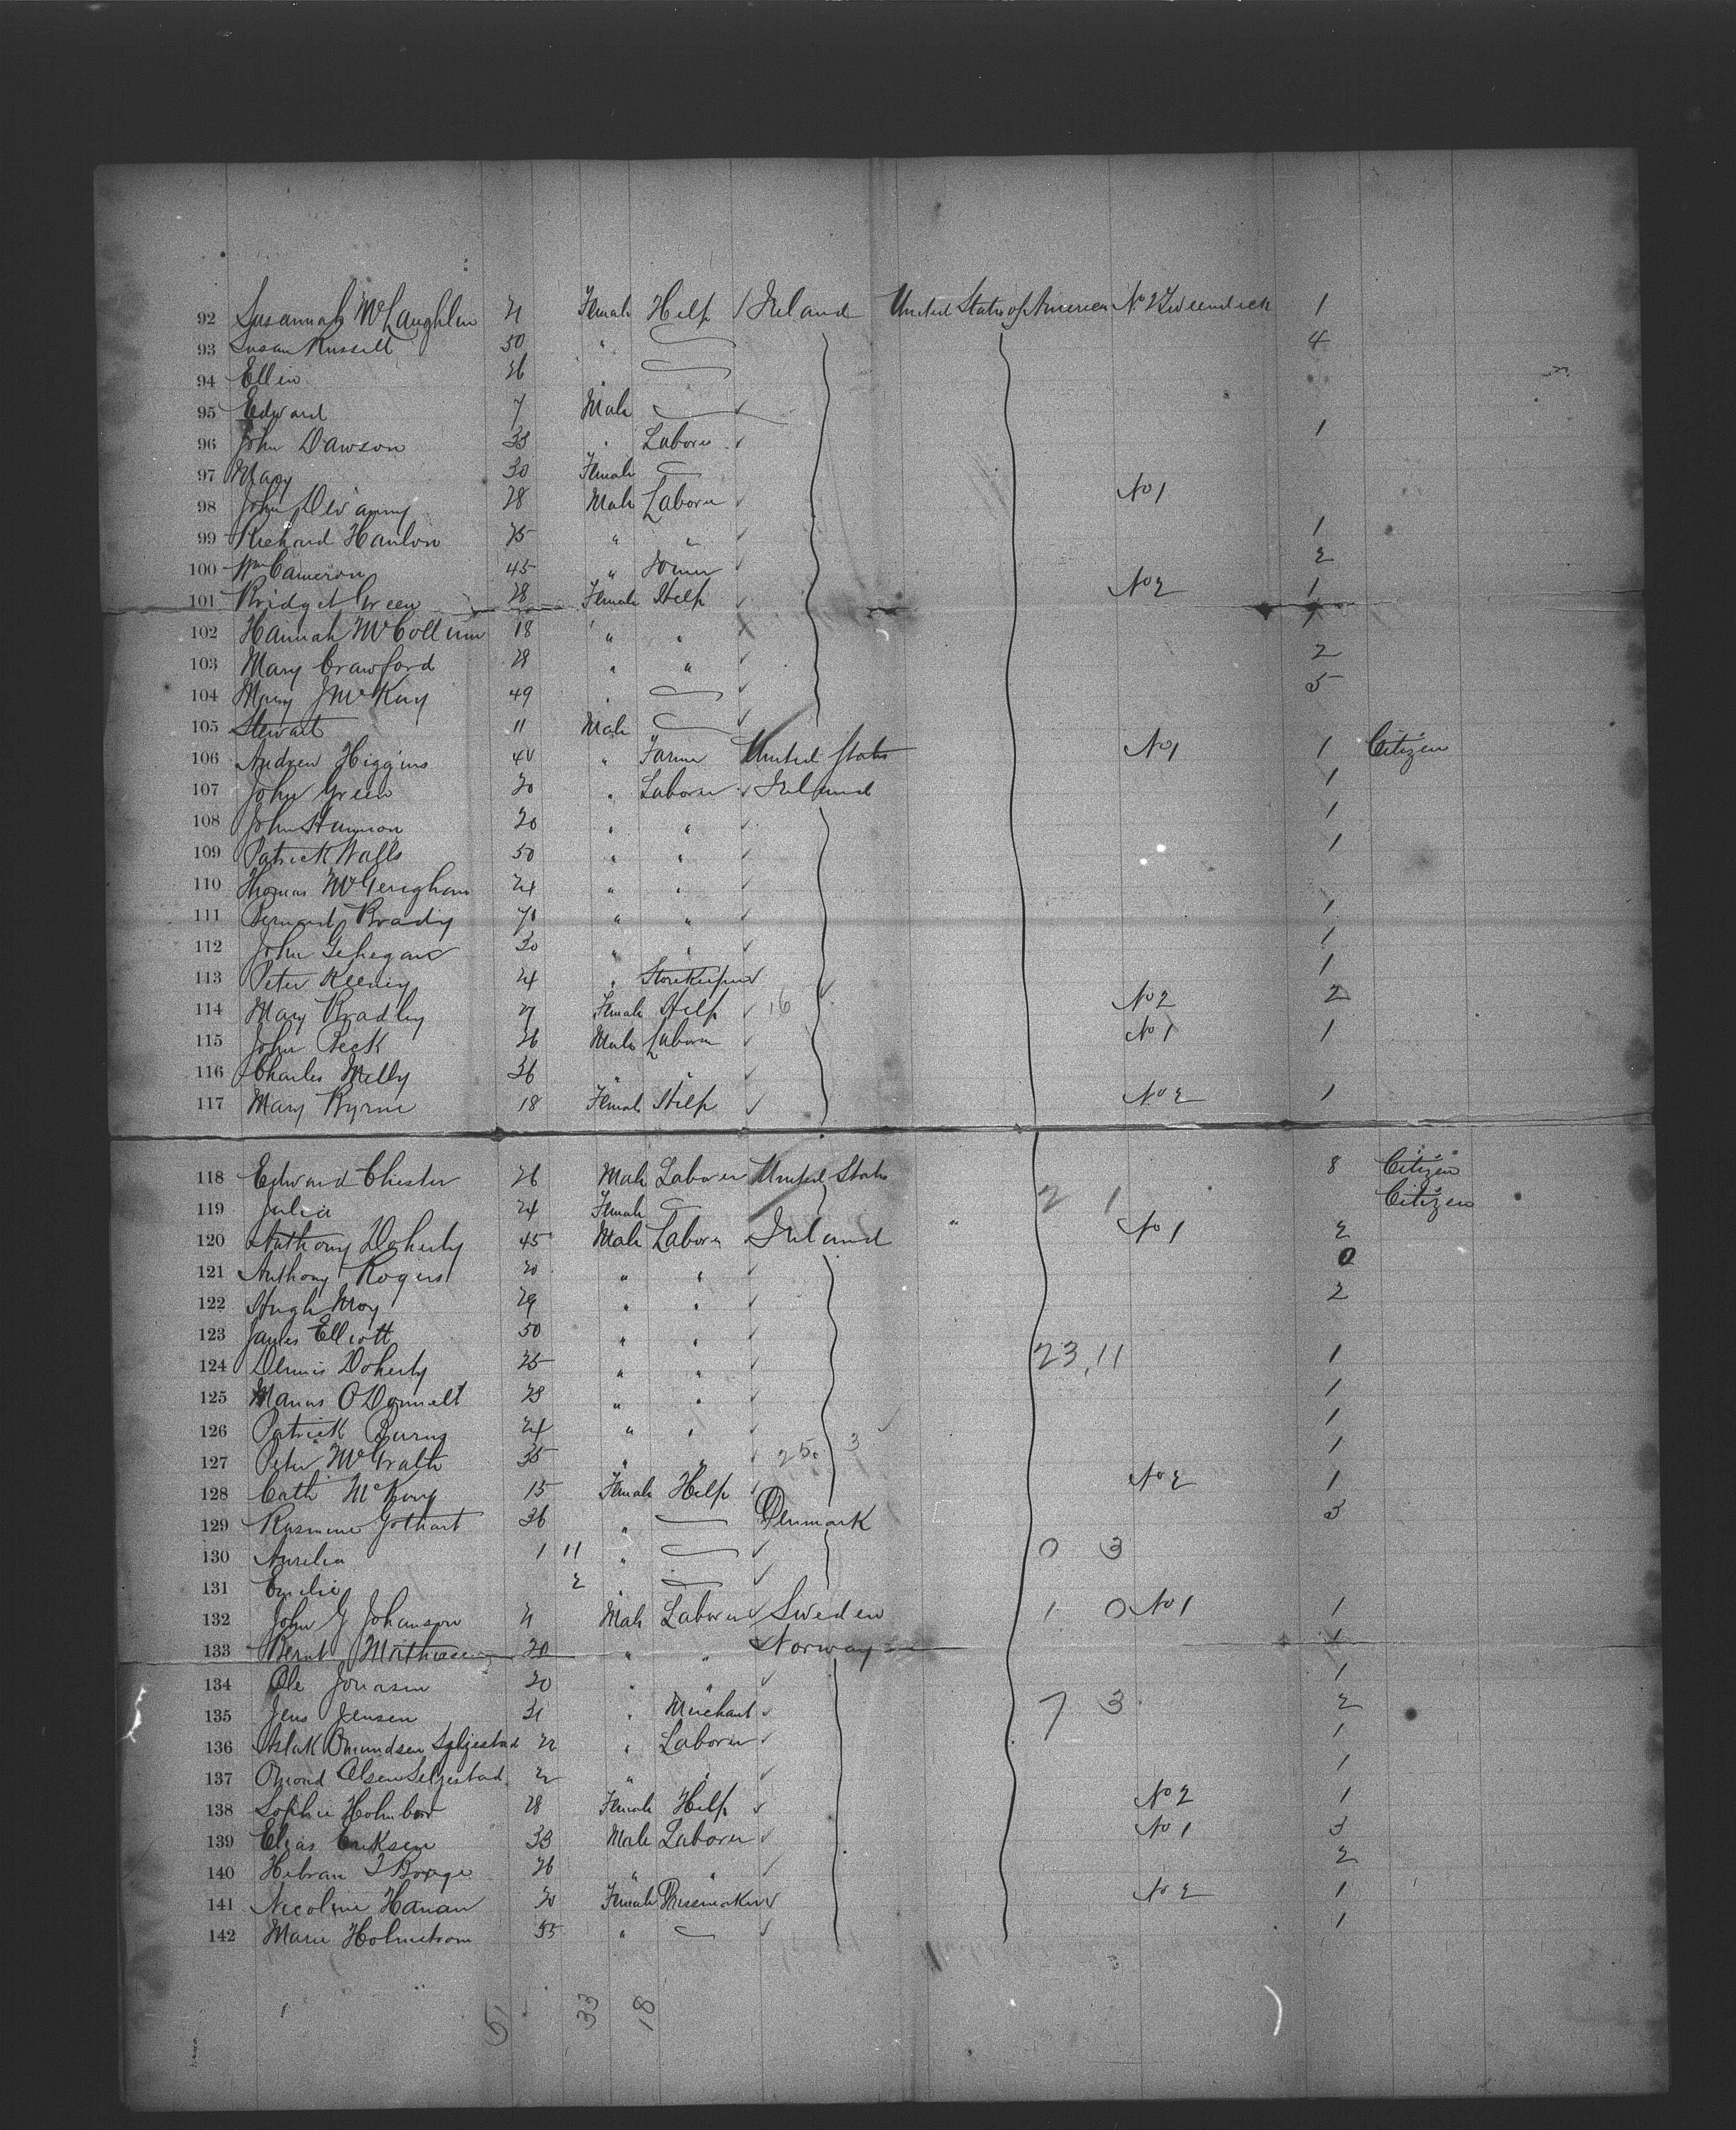 92 Susannah McLaughlin 21 Female Help / Ireland United States of America No 2 Tweendeck 1
93 Susan Russell 50 " 4
94 Ellen 26
95 Edward 7 Male
96 John Dawson 33 " Laborer 1
97 Mary 30 Female
98 John Devanny 28 Male Laborer No 1
99 Richard Hanlon 25 " " 1
100 Wm Cameron 45 " 2
101 Bridget Green 28 Female Help No 2 1
102 Hannah McCollum 18 " " 1
103 Mary Crawford 28 " " 2
104 Mary J McKay 49 " 5
105 Stewart 11 Male
106 Andrew Higgins 40 " Farmer United States No 1 1 Citizen
107 John Green 20 " Laborer Ireland 1
108 John 20 " " 1
109 Patrick Walls 50 " " 1
110 Thomas 24 " "
111 Bernard Brady 70 " " 1
112 John Gehegan 30 " " 1
113 Peter 24 " Storekeeper 1
114 Mary Bradley 21 Female Help 16 No 2 2
115 John Peck 26 Male Laborer No 1 1
116 Charles Melly 36 " "
117 Mary Byrne 18 Female Help No 2 1
118 Edward Chester 26 Male Laborer United States 8 Citizen
119 Julia 24 Female 2 1 Citizen
120 Anthony Doherty 45 Male Laborer Ireland " No 1 2
121 Anthony Rogers 20 " " 0
122 Hugh 29 " " 2
123 James Elliott 50 " "
124 Dennis Doherty 25 " " 23 11 1
125 Manus O'Donnell 28 " " 1
126 Patrick Burns 24 " " 1
127 Peter McGrath 35 " " 25 3 1
128 Cath McKay 15 Female Help No 2 1
129 Rasmine Gothart 36 " Denmark 3
130 Aurelia 1 11 " 0 3
131 Emilie 2 "
132 John G Johanson 21 Male Laborer Sweden 1 0 No 1 1
133 Bernt Mathiasen 20 " " Norway 1
134 Ole 20 " " 1
135 Jens Jensen 31 " Merchant 7 3 2
136 Aslak Omundsen Seljestad 22 " Laborer 1
137 Omond Olsen Seljestad 22 " " 1
138 Sophie 28 Female Help No 2 1
139 Elias Eriksen 33 Male Laborer No 1 3
140 26 " " 2
141 Nicoline Hanan 20 Female Dressmaker No 2 1
142 Marie Holmstrom 55 " 1
51 33 18